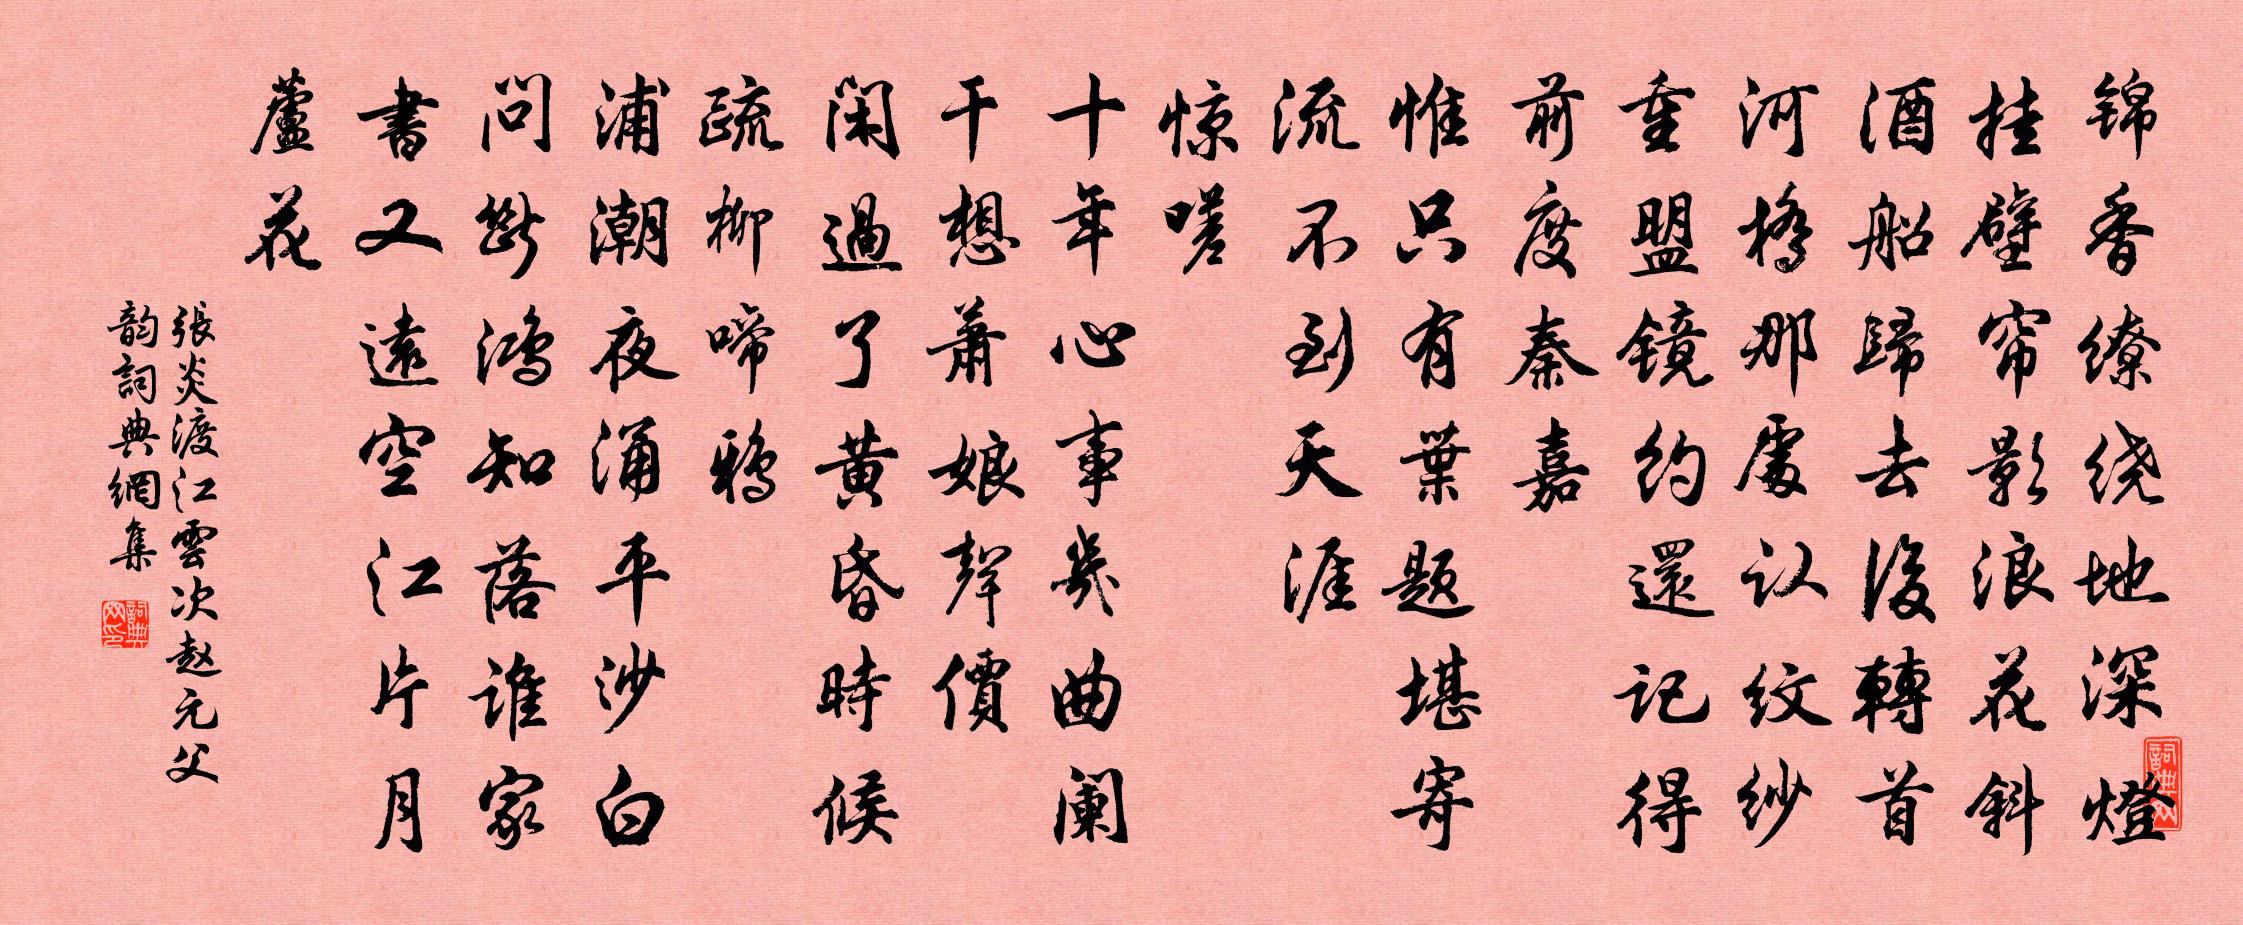 锦香缭绕地深燈
挂壁帘影浪花斜
酒船歸去後轉首
河橋那處认纹纱
重盟镜约還记得
前度秦嘉
惟只有葉题堪寄
流不到天涯
惊嗟
十年心事幾曲阑
干想萧娘聲價
闲過了黄昏時候
疏柳啼鸦
浦潮夜涌平沙白
问斷鸿知落谁家
書又遠空江片月
蘆花
張炎渡江雲次赵元父
韵詞典網集
詞典网印
詞典网